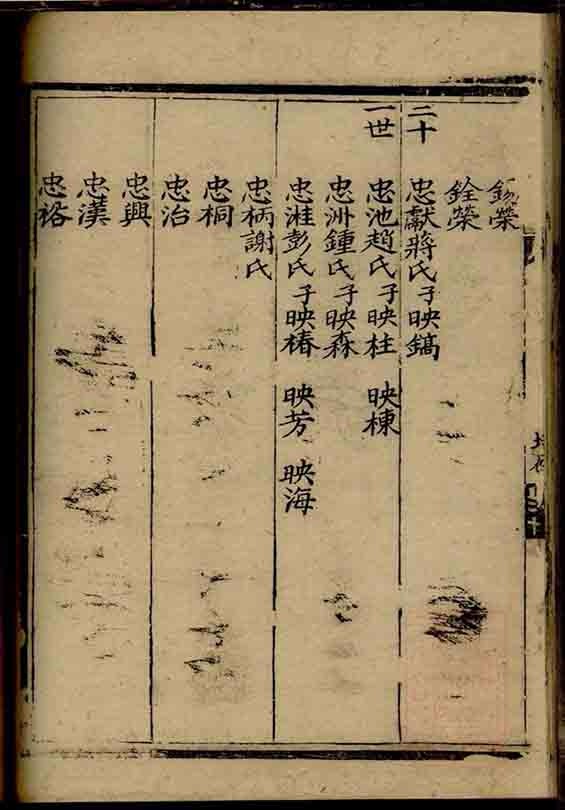 榮
銓榮
二十
一世
忠獻蔣氏子映鎬
忠池趙氏子映柱 映棟
忠洲鍾氏子映森
忠溎彭氏子映椿 映芳 映海
忠柄謝氏
忠桐
忠治
忠興
忠漢
忠裕